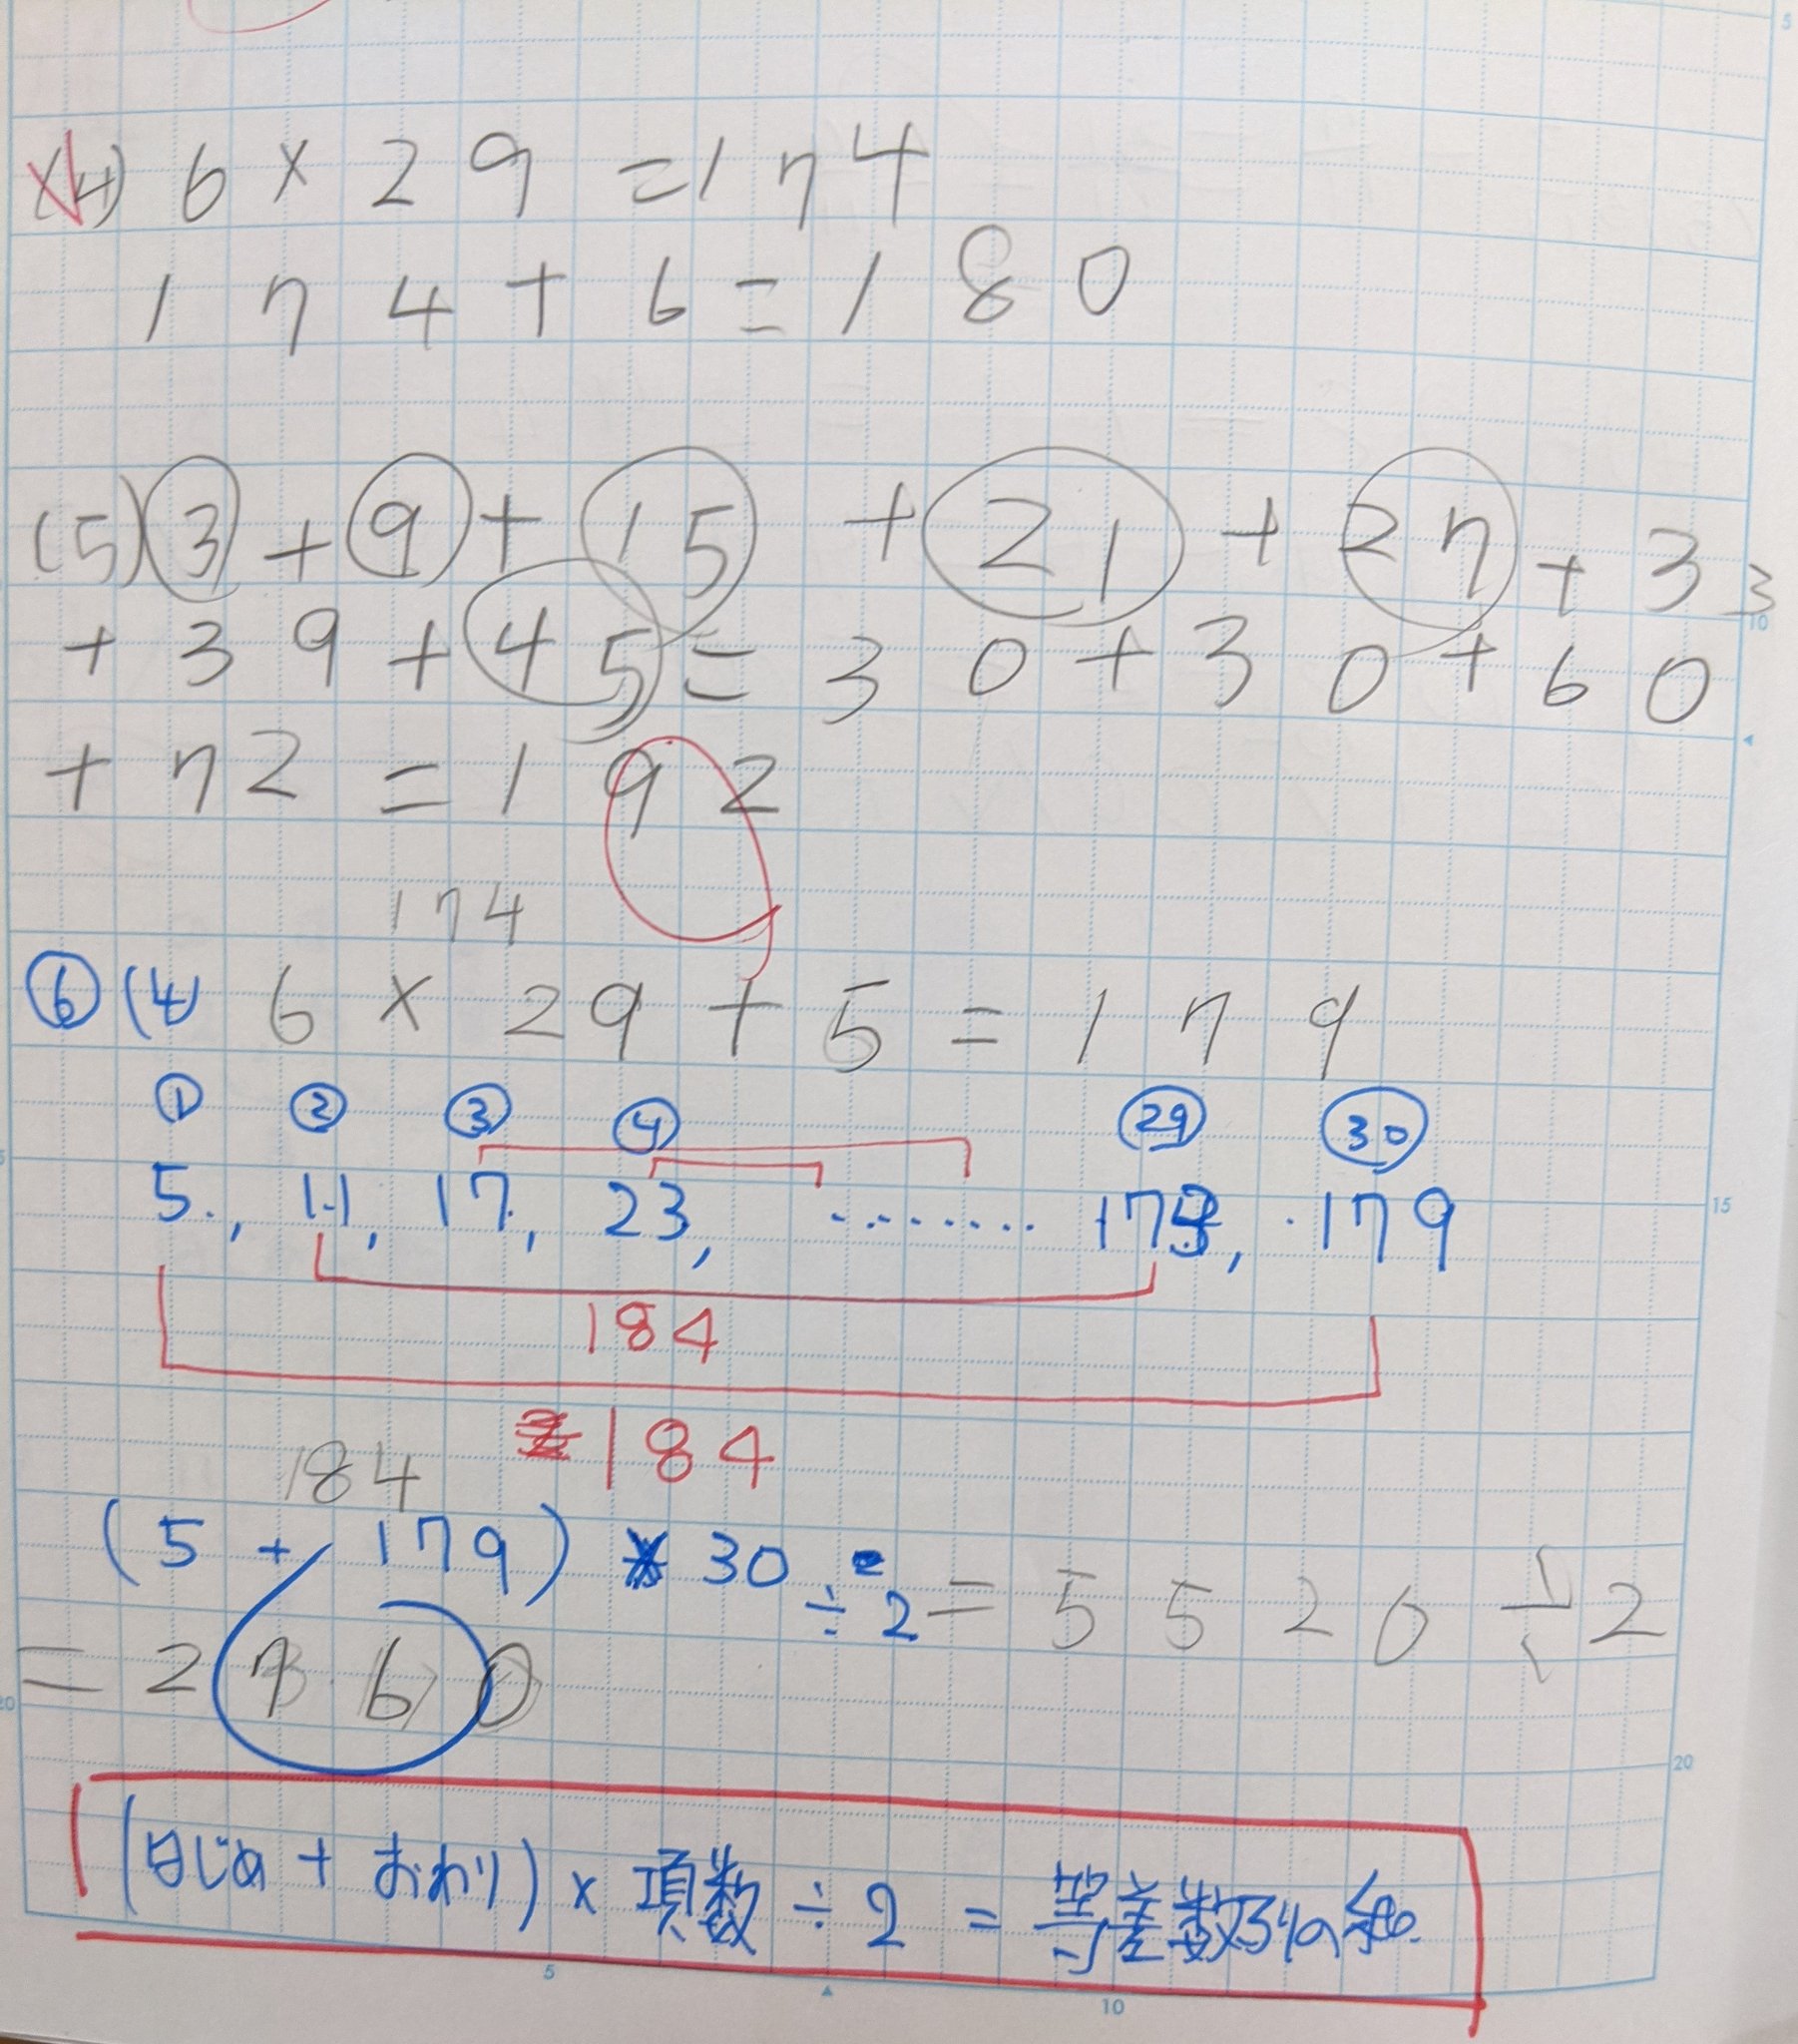 (4) 6 × 29 = 174
174 + 6 = 180
(5) 3 + 9 + 15 + 21 + 27 + 33
+ 39 + 45 = 30 + 30 + 60
+ 72 = 192
174
⑥ (4) 6 × 29 + 5 = 179
① ② ③ ④ ㉙ ㉚
5, 11, 17, 23, ········ 173, 179
184
184
184
(5 + 179) × 30 ÷ 2 = 5520 ÷ 2
= 2760
(はじめ + おわり) × 項数 ÷ 2 = 等差数列の和
5
10
15
20
5
10
20